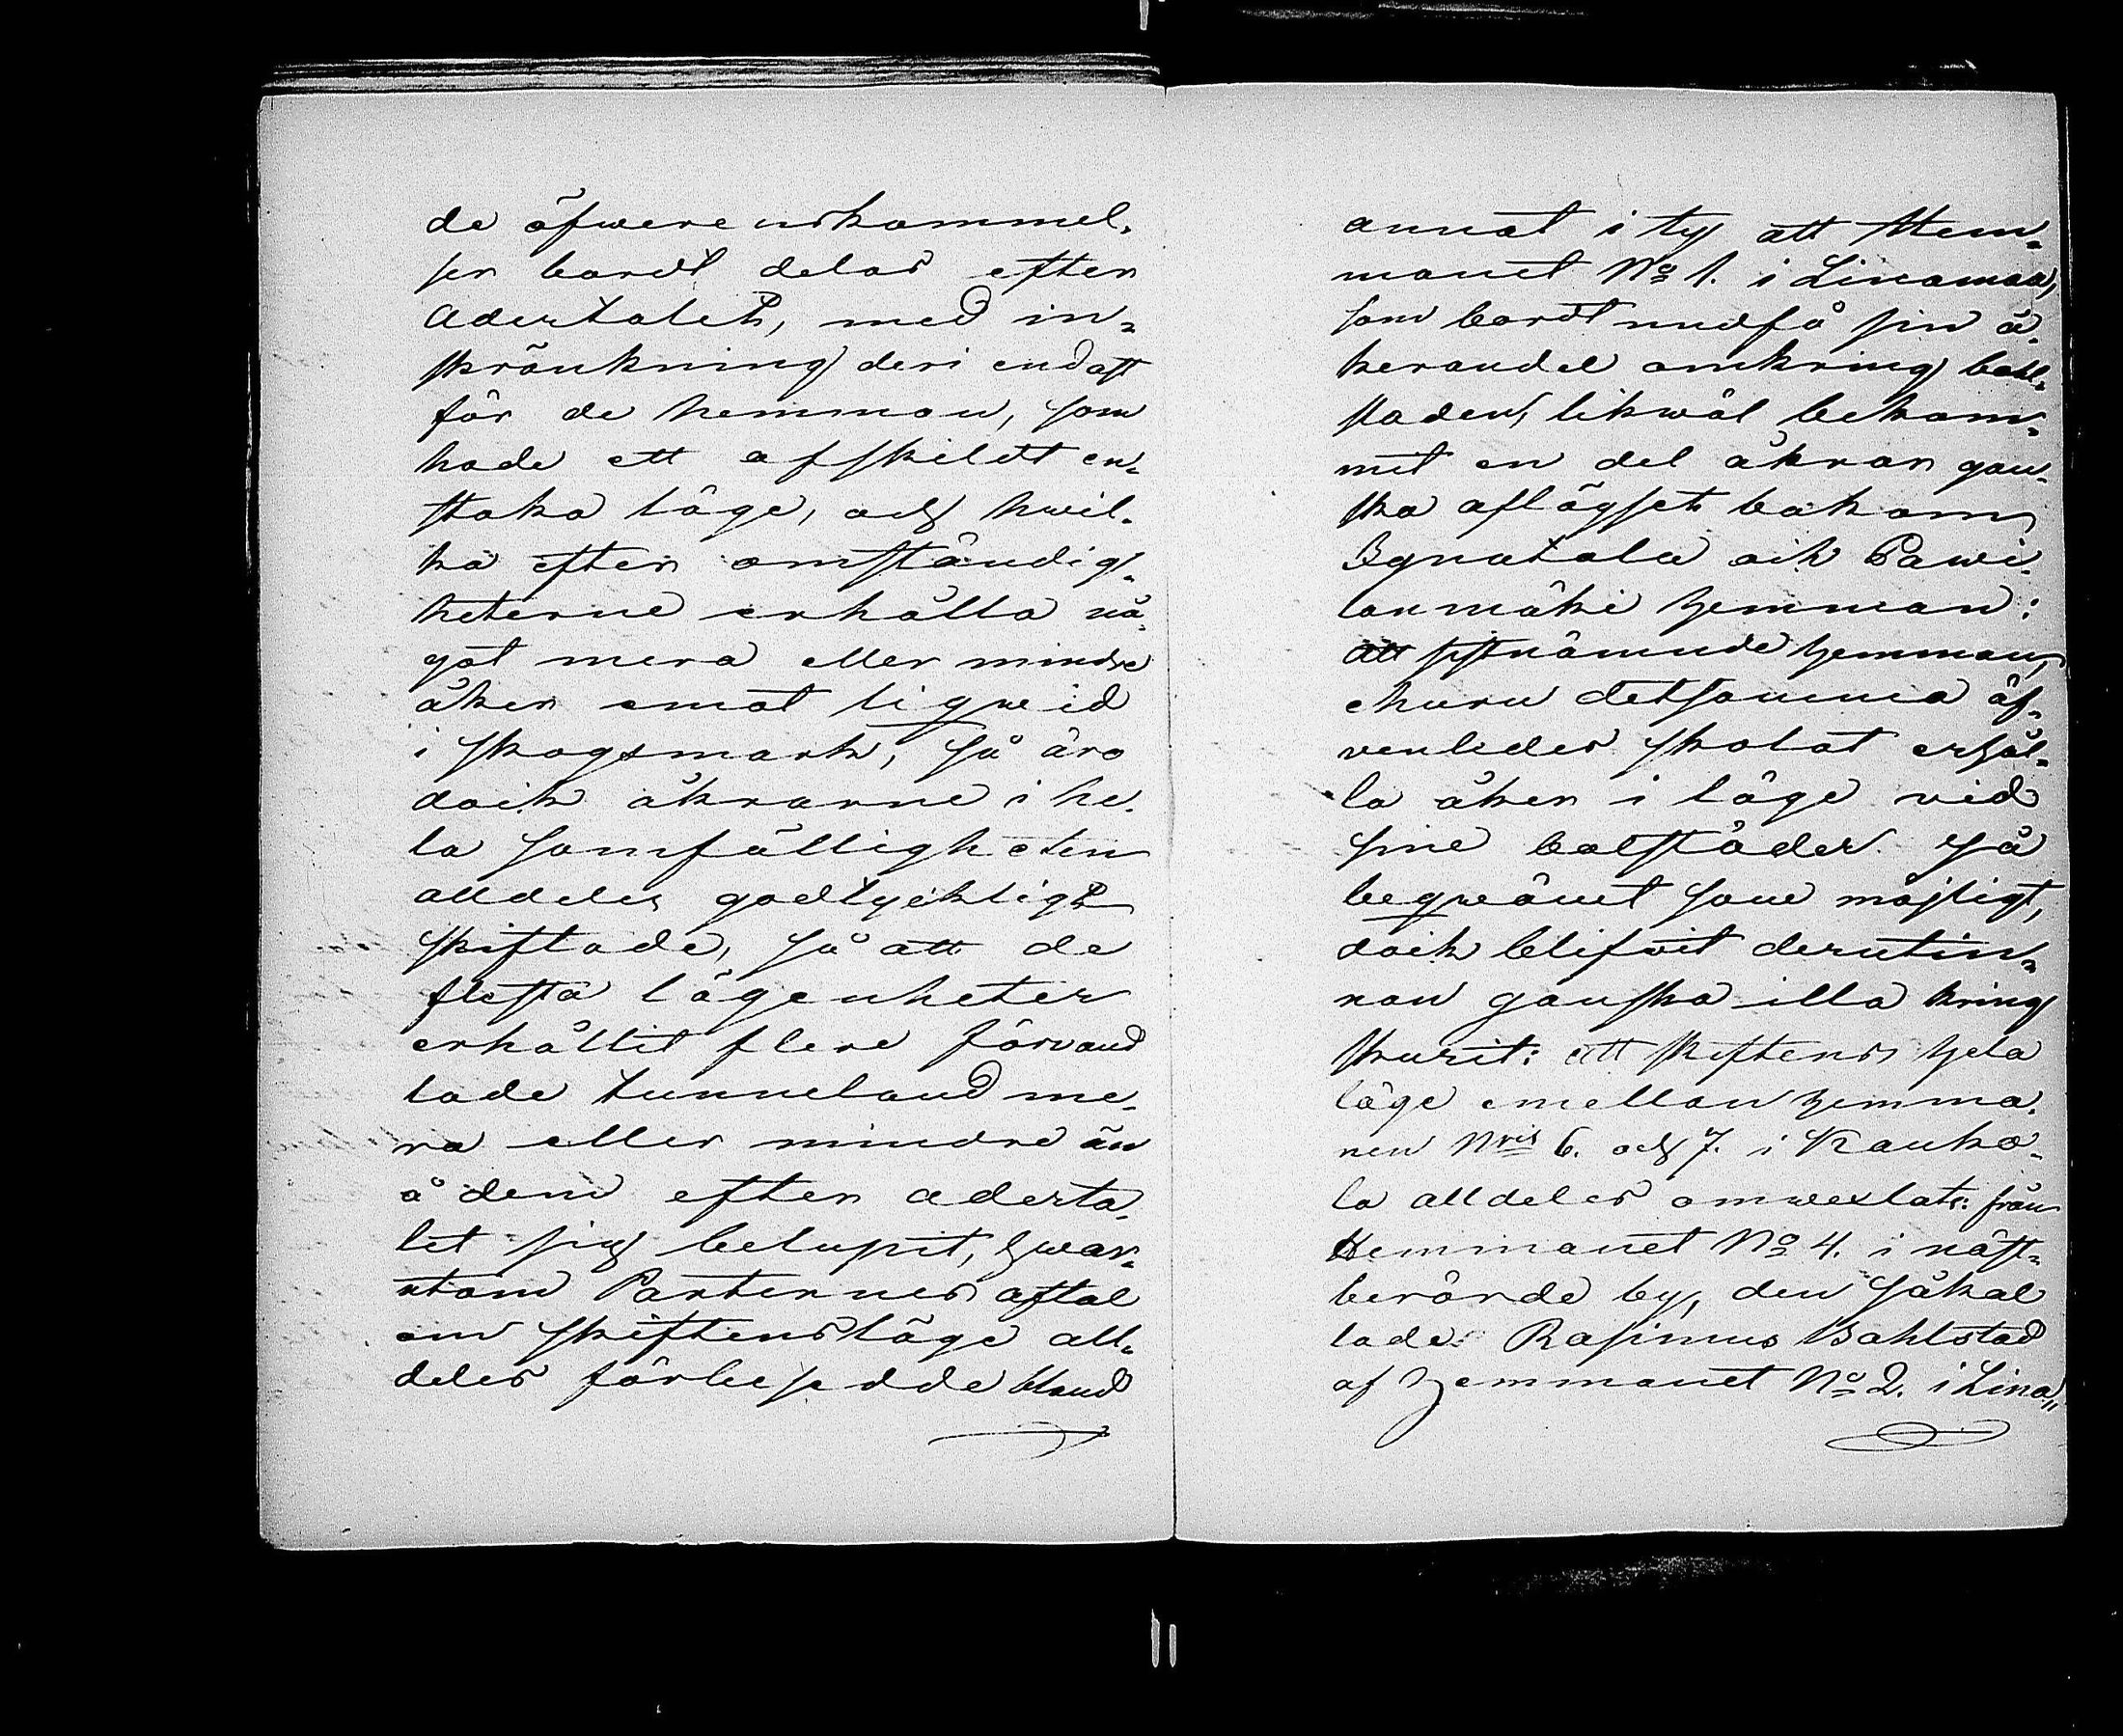 de öfwerenskommel-
ser bordt delas efter
adertalet, med in-
skränkning deri endast
för de hemman, som
hade ett afskildt en-
staka läge, och hwil-
ka efter omständig-
heterne erhålla nå-
got mera eller mindre
åker emot liqweid
i skogsmark, så äro
dock åkrarne i he-
la samfälligheten
alldeles godtyckligt
skiftade, så att de
flesta lägenheter
erhållit flere förvand
lade tunneland me-
ra eller mindre än
å dem efter aderta-
let sig belupit, hwar-
utom Parternes aftal
om skiftensläge all-
deles förbisedde bland
annat i ty att Hem-
manet No 1. i Linamaa,
som bordt undfå sin å-
kerandel omkring bohl-
staden, likwäl bekom-
mit en del åkrar gan-
ska aflägset bakom
Ignatala och Pawi-
lanmäki hemman:
att sistnämnde hemman,
churu detsamma äf-
venledes skolat erhål-
la åker i läge vid
sine bolstäder så
beqwämt som möjligt,
dock blifvit derutin-
nan ganska illa kring
skurit: att skiftens hela
läge emellan hemma-
nen Nris 6. och 7. i Kauko-
la alldeles omwexlats: från
Hemmanet No 4. i näst-
berörde by, den såkal
lade Rasimus Bohlstad
af hemmanet No 2. i Lina-